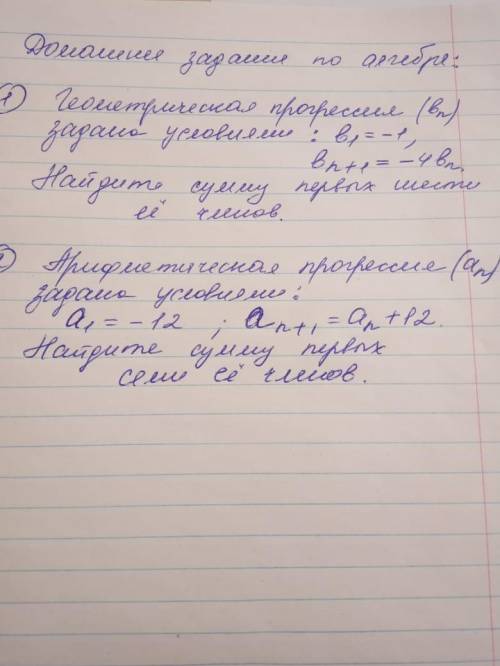 Домашние задания по алгебре:
1 Геометрическая прогрессия (bn)
задана условиями: b1 = -1,
bn+1 = -4bn.
Найдите сумму первых шести
её членов.
2 Арифметическая прогрессия (an)
задана условиями:
a1 = -12 ; an+1 = an + 12.
Найдите сумму первых
семи её членов.